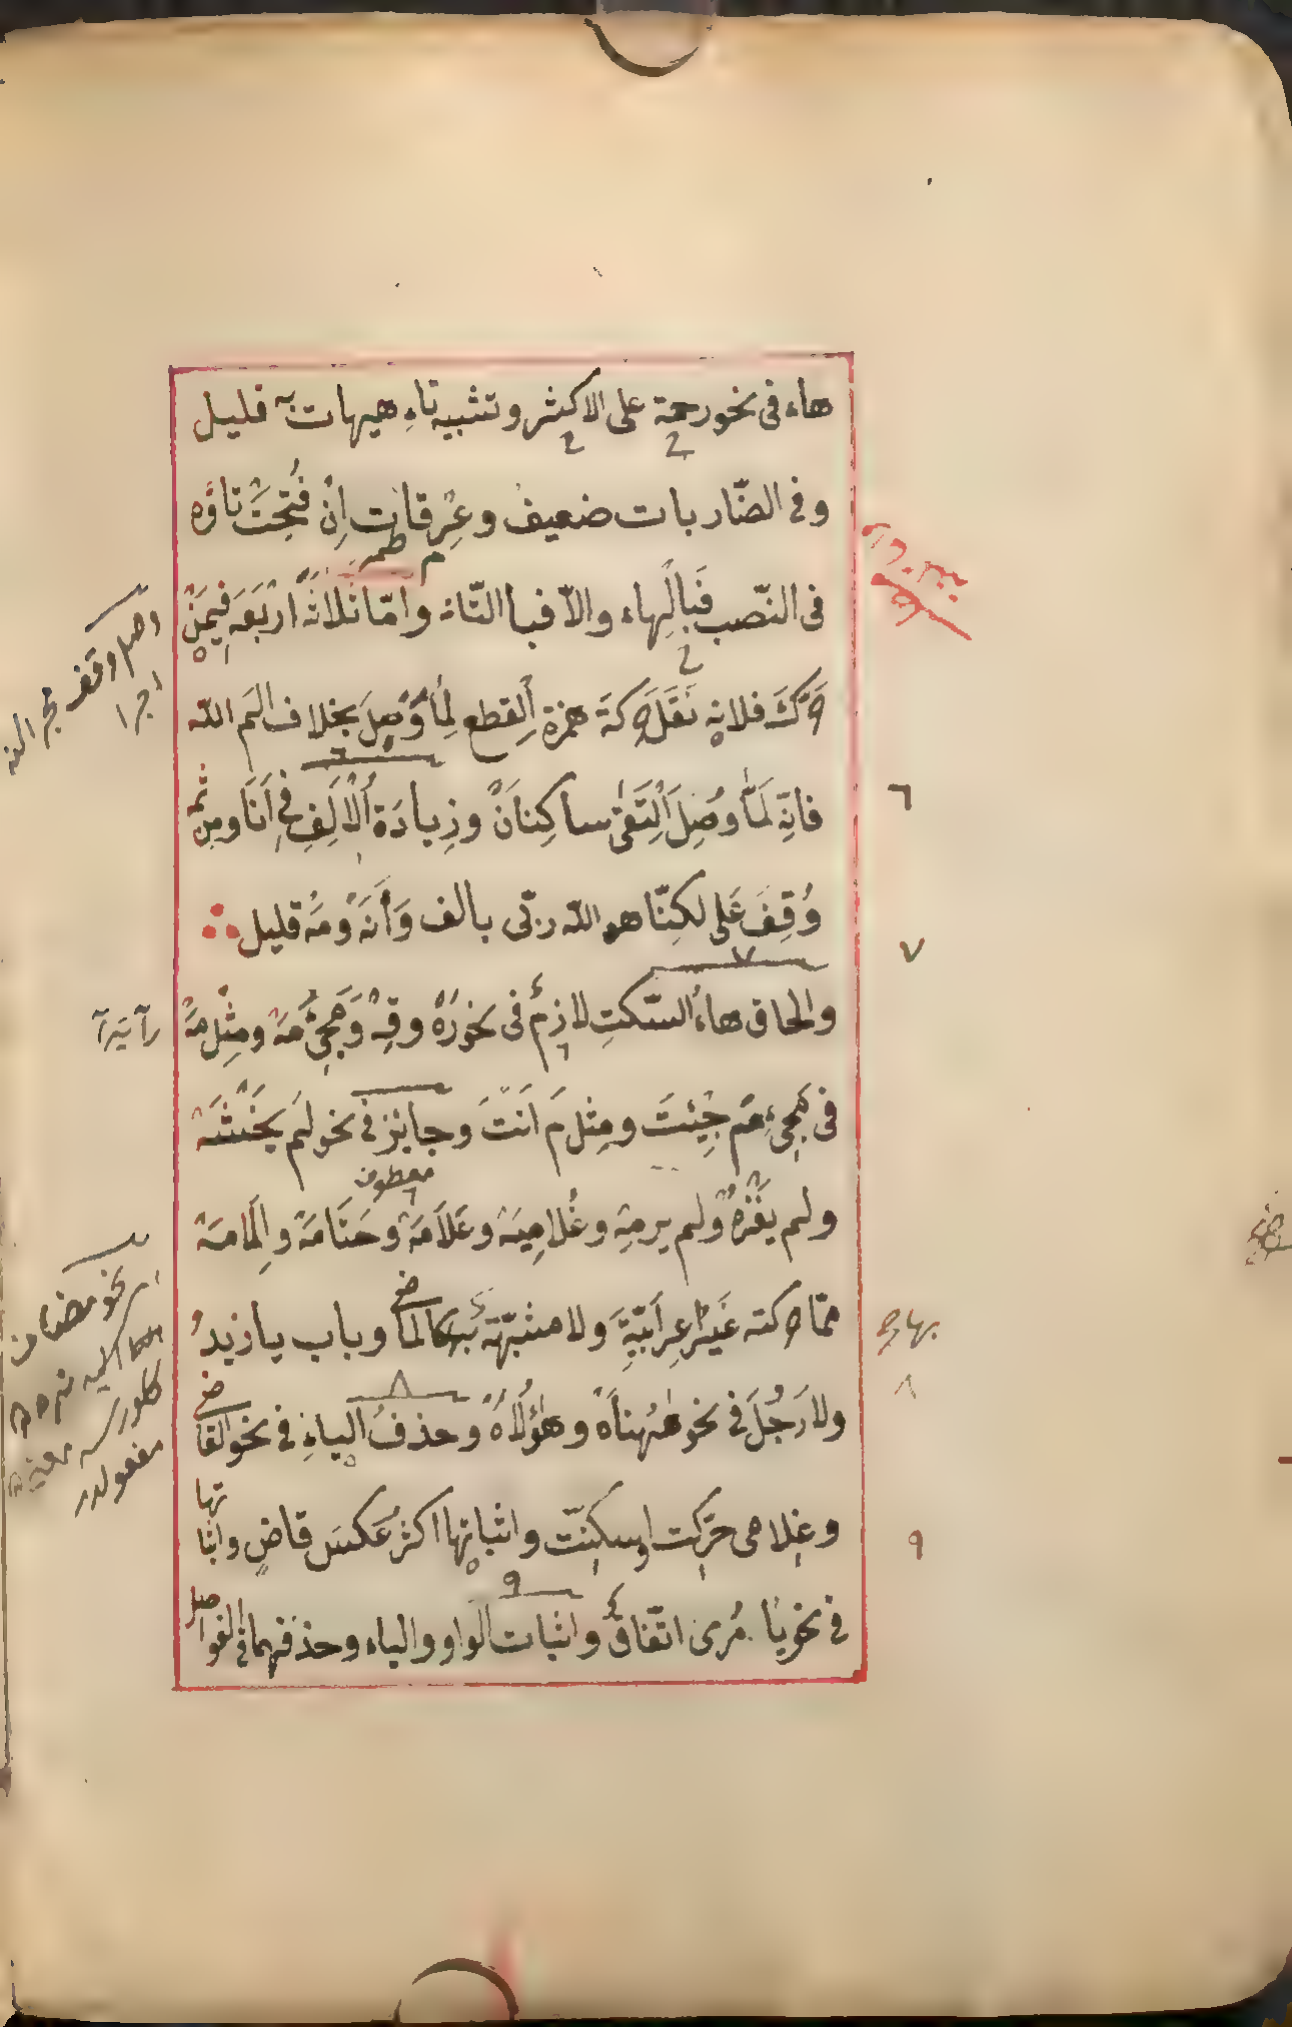 هاء فى نحو رحمة على الاكثر وتشبيه تاءِ هيهات به قليل
وفى الضّاربات ضعيف وعِرقات اِنْ فُتِحَتْ تاؤه
فى النّصب فَبالْهاء والاّ فبالتّاء وامّا ثلاثهَ اَرْبَعَه فيمَنْ
حرّكَ فلانه نَقَلَ حركةَ همزة اَلقطع لمّا وُصِلَ بخلاف الٓم اللّه
فانّه لَمّا وُصِلَ اَلْتَقىٰ ساكِنانِ وزِيادَة اُلْاَلِفِ فى اَنَا ومن ثمّ
وُقِفَ عَلى لكِنّا هو اللّه ربّى بالف وَأَنَهْ ومَهْ قليل
والحاق هاءُ السّكتِ لازِمٌ فى نحو رَهْ وقِهْ وَمَجِئُ مَهْ ومِثْل مَهْ
فى مَجئِ مَ جِئتَ ومِثل مَ اَنْتَ وجايز فى نحو لم يَخْشَهْ
معطوف
ولم يَغْزُهْ ولم يرمِهْ وغُلامِيَهْ وعَلاَمَهْ وحَتّامَهْ واِلَامَهْ
ممّا حركته غَيْرُ اِعِرَابيّةٍ ولا مشبّهة بها كالماضى وباب يا زيدُ
ولا رَجُلَ فى نحو هٰهُناهْ وهٰؤُلَاهْ وحذف الياءِ فى نحو القاضى
وغلامى حرّكت او سكنّت واثباتها اكثر عَكسَ قاضٍ واثباتها
فى نحو يا مُرِى اتّفاق واثبات الواو والياء وحذفهما فى الفواصل
٦
٧
٨
٩